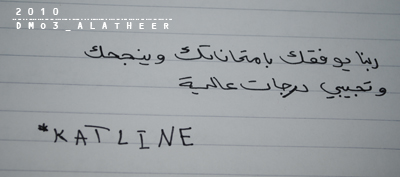 2010
DMo3_ALATHEER
ربنا يوفقك بامتحاناتك وينجحك
وتجيبي درجات عالية
*KATLINE